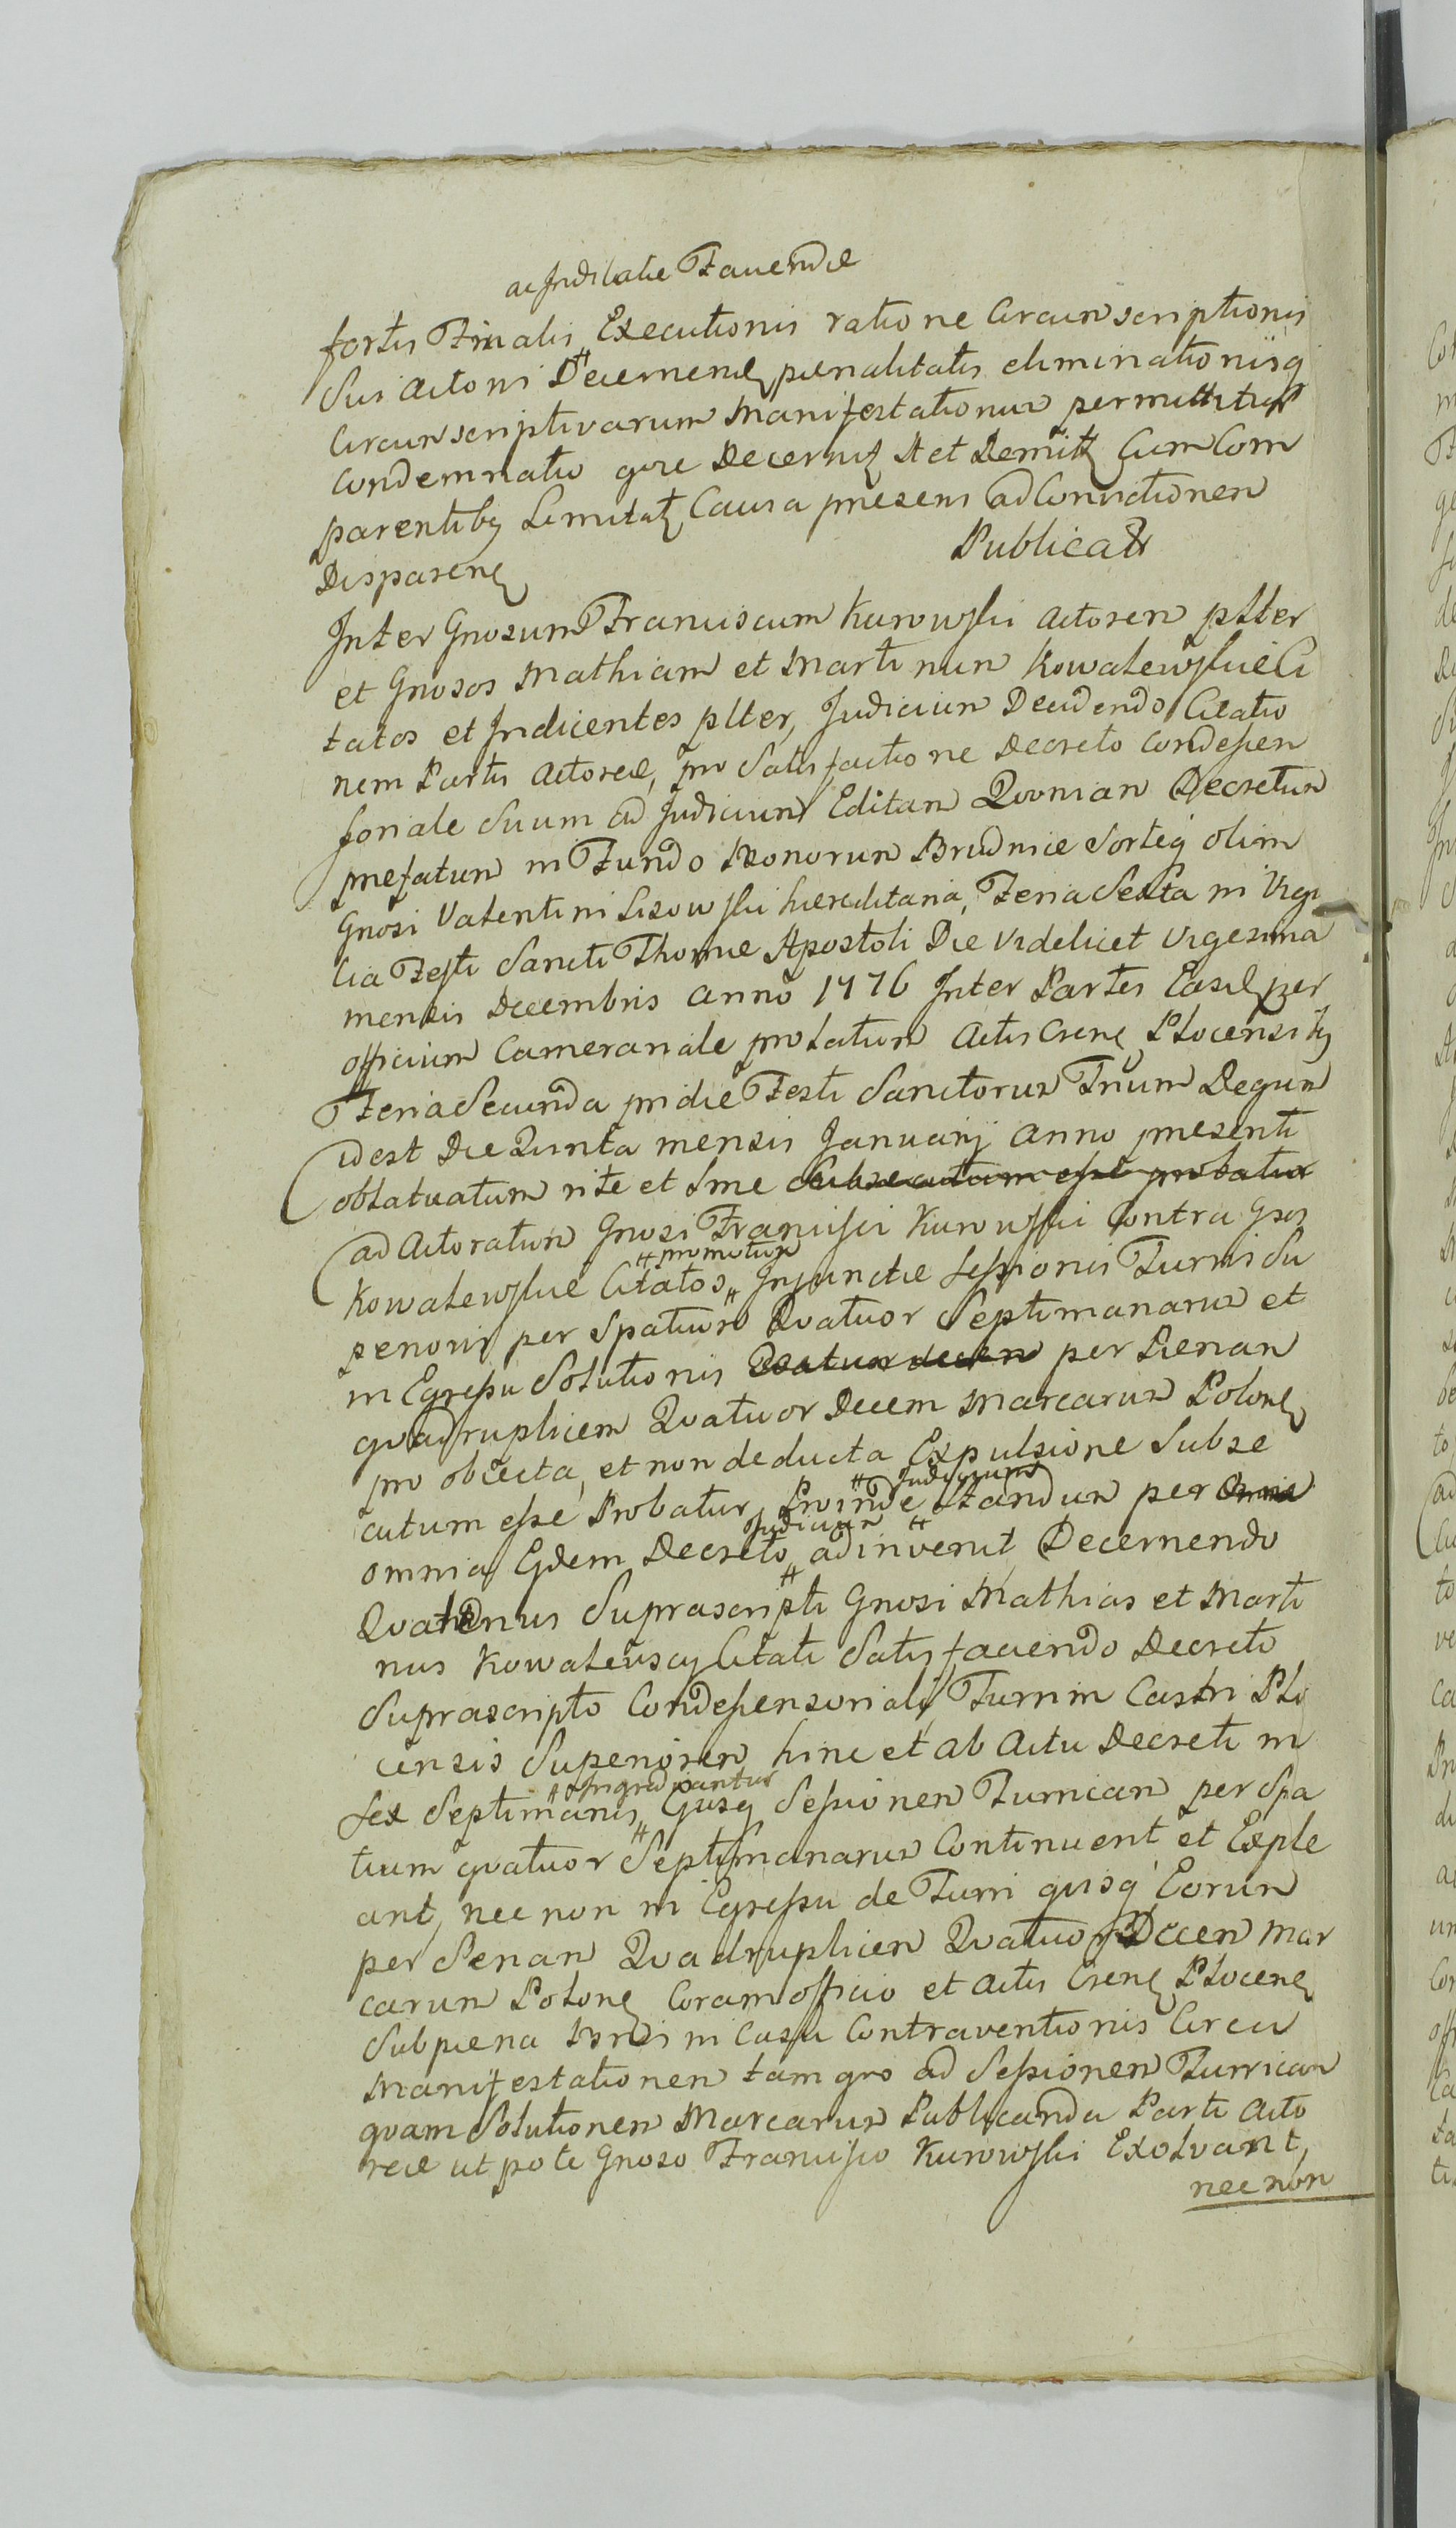 ac Indilatae Favendae
fortis Finalis Executionis ratione Circumscriptionis
Sui Actoris Decernend paenalitatis eliminationisq
Circumscriptivarum Manifestationum permittitur
Condemnatio qore Decernit Act et Remitt Cum Com
parentibq Limitat Causa praesens ad Convictionem
Disparen Publicatr
Inter Gnosum Franciscum Kurowski Actorem ptter
et Gnosos Mathiam et Martinum Kowalewskie Ci
tatos et Indicentes ptter, Judicium Decidendo Citatio
nem Partis Actoreae, pro Satisfactione Decreto Condescen
soriale Suum ad Judicium Editam Qvoniam Decretum
praefatum in Fundo Bonorum Brudnice Sorteq olim
Gnosi Valentini Lisowski haereditaria, Feria Sexta in Vigi
lia Festi Sancti Thomae Apostoli Die Videlicet Vigesima
mensis Decembris Anno 1776 Inter Partes Easd per
officium Camerariale prolatum Actis Csren Plocensibq
Feria Secunda pridie Festi Sanctorum Trium Regum
idest Die Qvinta mensis Januarij Anno praesenti
oblatuatum rite et Sme Subsecutum esse probatur
ad Actoratum Gnosi Francisci Kurowski Contra Gsos
promotum
Kowalewskie Citatos Injunctae Sessionis Turris Su
perioris per Spatium Qvatuor Septimanarum et
in Egressu Solutionis Qvatuor decem per Paenam
qvadruplicem Qvatuor Decem Marcarum Polon
pro objecta, et non deducta Expulsione Subse
Judicium
cutum esse Probatur, Proinde Standum per Omnia
Judicium
omnia Eydem Decreto, adinvenit Decernendo
Qvatenus Suprascripti Gnosi Mathias et Marti
nus Kowalewscy Citati Satisfaciendo Decreto
Suprascripto Condescensoriali Turrim Castri Plo
censis Superiorem hinc et ab Actu Decreti in
Ingrediantur
Sex Septimanis, Ejusq Sessionem Turricam per Spa
tium qvatuor Septimanarum Continuent et Exple
ant, nec non in Egressu de Turri qvisq Eorum
per Paenam Qvadruplicem Qvatuor Decem Mar
carum Polon Coram officio et Actis Csren Plocen
Sub paena Banni in Casu Contraventionis Circa
Manifestationem tam qvo ad Sessionem Turricam
qvam Solutionem Marcarum Publicanda Parti Acto
reae ut pote Gnoso Francisco Kurowski Exolvant,
nec non